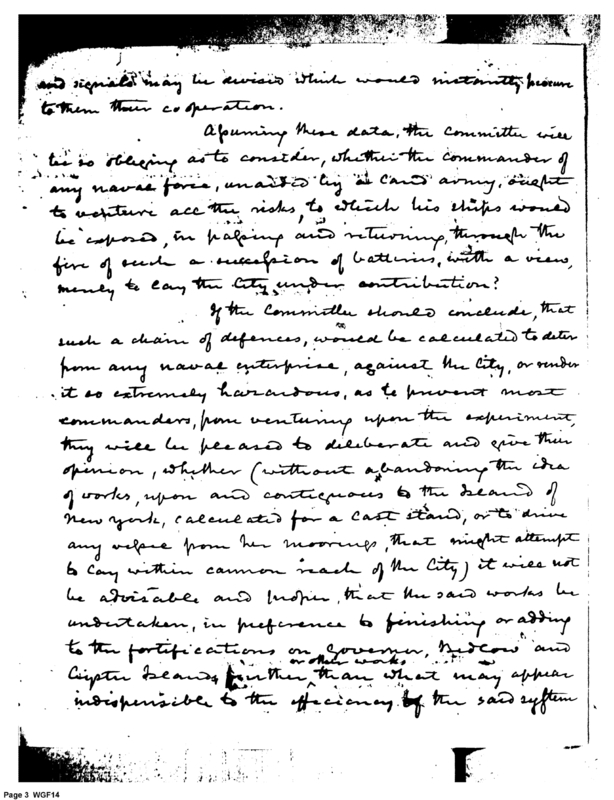 and signals may be devised which would instantly procure
to them their cooperation.
Assuming these data, the Committee will
be so obliging as to consider, whether the commander of
any naval force, unaided by a land army, ought
to venture all the risks, to which his ships would
be exposed, in passing and returning, through the
fire of such a succession of batteries, with a view,
merely to lay the City under contribution?
If the Committee should conclude, that
such a chain of defences, would be calculated to deter
from any naval enterprise, against the City, or render
it so extremely hazardous, as to prevent most
commanders, from venturing upon the experiment,
they will be pleased to deliberate and give their
opinion, whether (without abandoning the idea
of works, upon and contiguous to the Island of
New York, calculated for a last stand, or to drive
any vessel from her moorings, that might attempt
to lay within cannon reach of the City) it will not
be advisable and proper, that the said works be
undertaken, in preference to finishing or adding
to the fortifications on Governor, Bedlow and
or other works
Oyster Islands further, than what may appear
indispensible to the efficiency of the said system
Page 3 WGF14